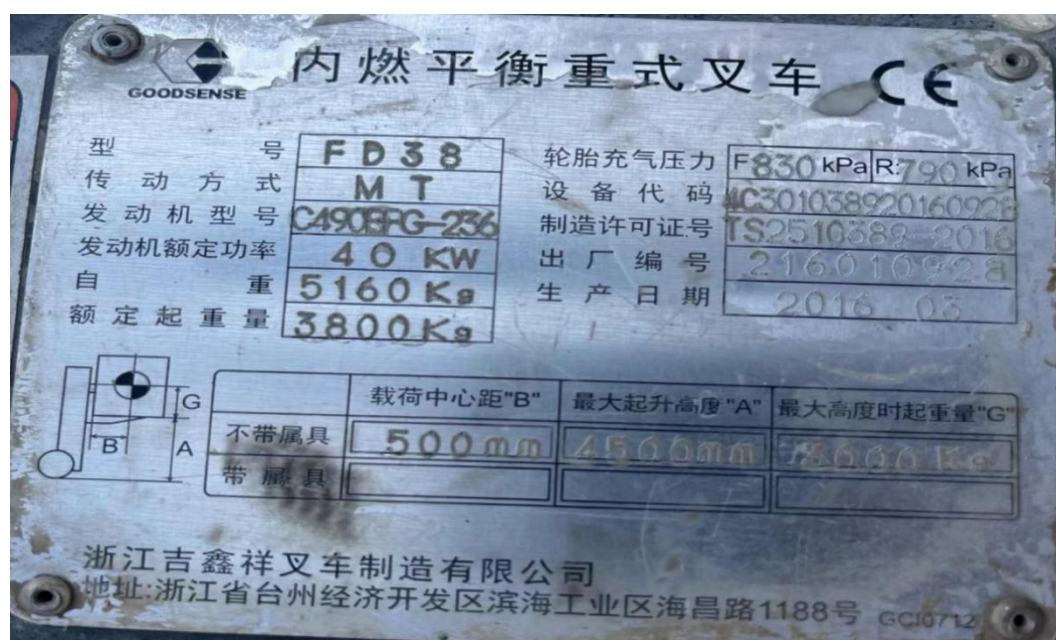 GOODSENSE
内燃平衡重式叉车 CE
型号 FD38
传动方式 MT
发动机型号 C490BPG-236
发动机额定功率 40 KW
自重 5160Kg
额定起重量 3800Kg
轮胎充气压力 F830 kPa R:790 kPa
设备代码
制造许可证号 TS2510389-2016
出厂编号 216010928
生产日期 2016 03
G
B A
载荷中心距"B" 最大起升高度"A" 最大高度时起重量"G"
不带属具 500mm 4500mm
带属具
浙江吉鑫祥叉车制造有限公司
地址:浙江省台州经济开发区滨海工业区海昌路1188号 GCJ0712